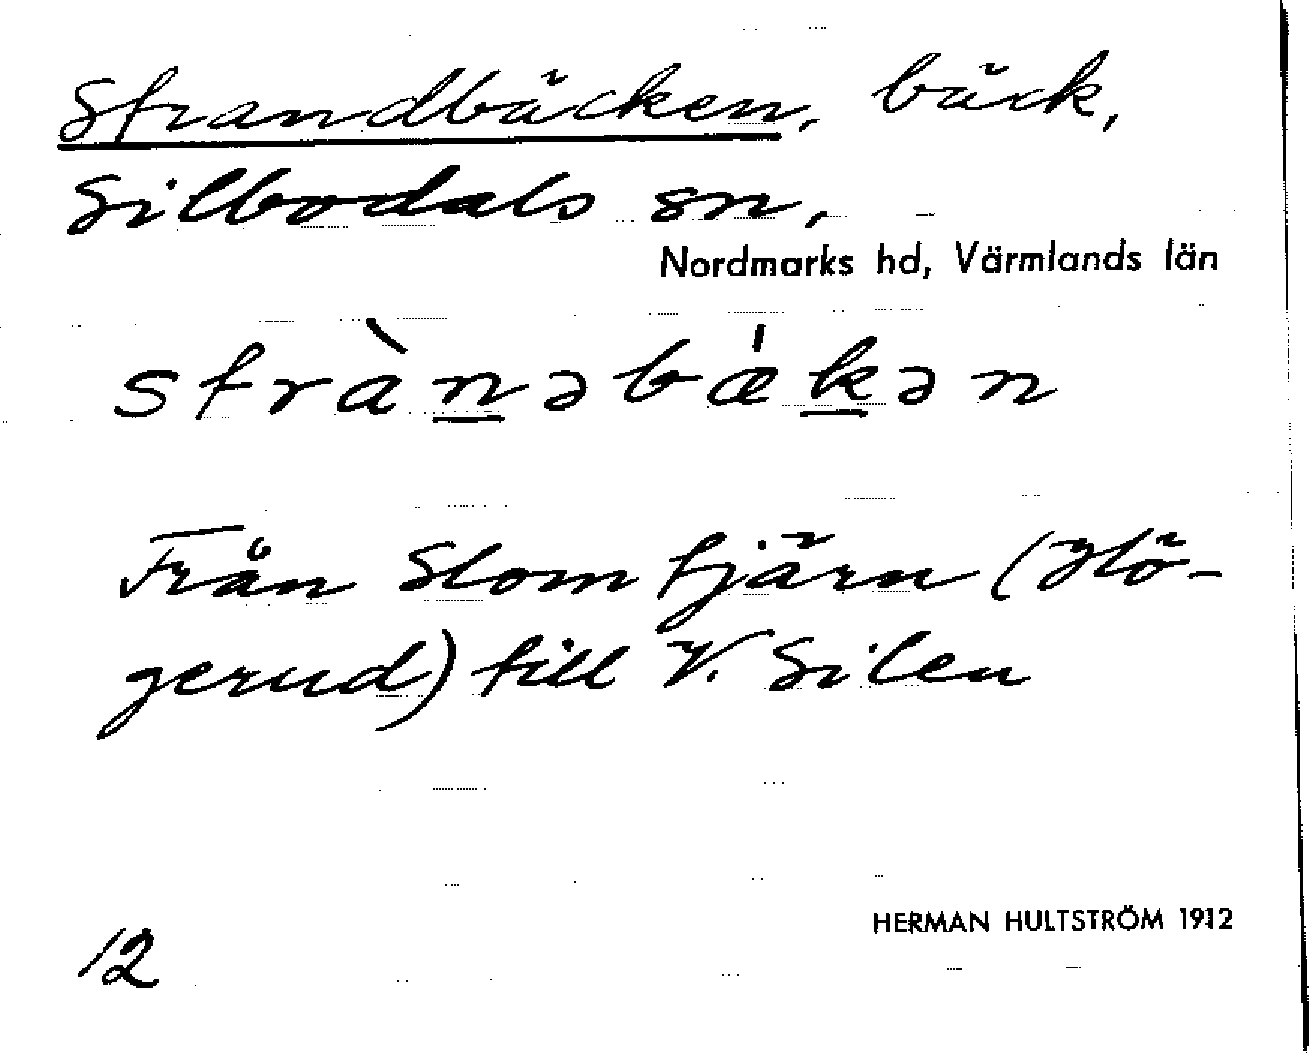 Strandbäcken, bäck,
Silbodals sn,
Nordmarks hd, Värmlands län
stràn̲əbǽk̲ən
Från Slomtjärn (Hö-
gerud) till V. Silen
HERMAN HULTSTRÖM 1912
12